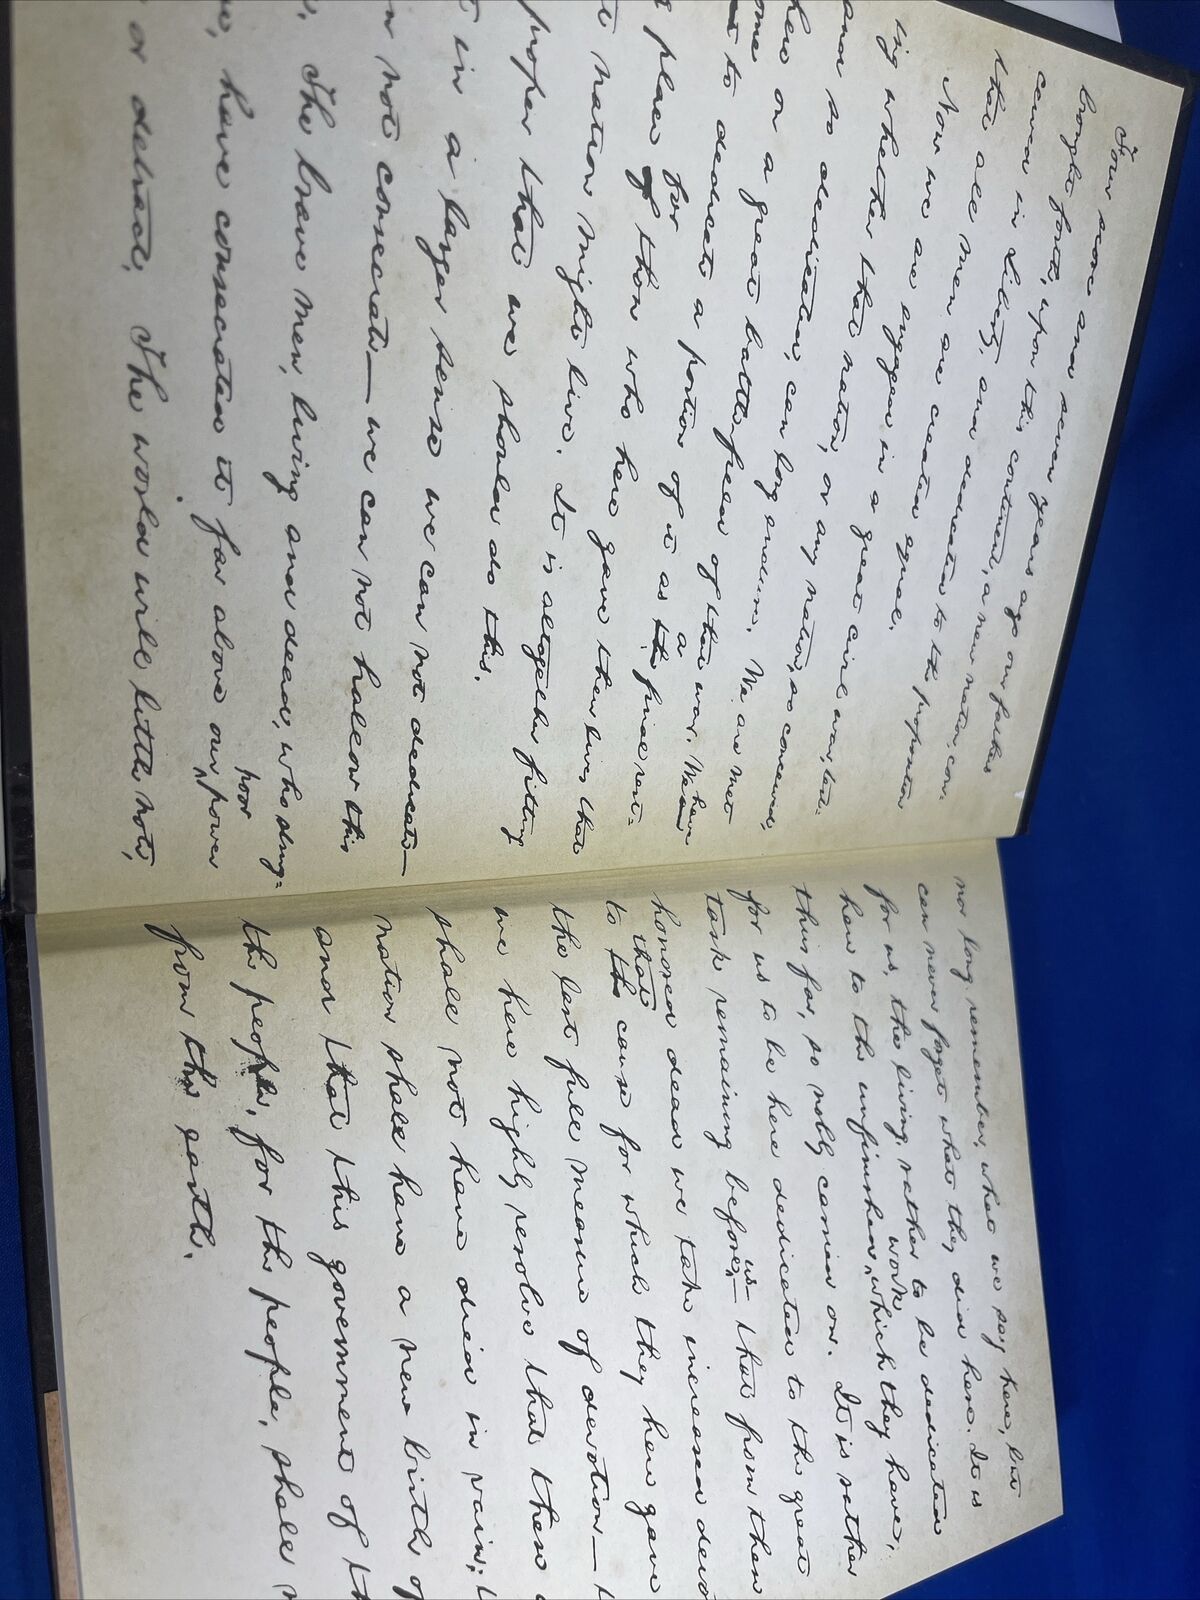 Four score and seven years ago our fathers
brought forth, upon this continent, a new nation, con-
ceived in Liberty, and dedicated to the proposition
that all men are created equal.
Now we are engaged in a great civil war, test-
ing whether that nation, or any nation, so conceived,
and so dedicated, can long endure. We are met
here on a great battle field of that war. We have
come to dedicate a portion of it as a final rest-
place for those who here gave their lives, that
nation might live. It is altogether fitting
proper that we should do this.
in a larger sense we can not dedicate—
not consecrate— we can not hallow this
The brave men, living and dead, who strug-
have consecrated it far above our poor power
or detract. The world will little note,
nor long remember, what we say here, but
can never forget what they did here. It is
for us, the living, rather to be dedicated
here to the unfinished work which they have,
thus far, so nobly carried on. It is rather
for us to be here dedicated to the great
task remaining before us— that from these
honored dead we take increased devo
to that cause for which they here gave
the last full measure of devotion—
we here highly resolve that these
shall not have died in vain;
nation shall have a new birth of
and that this government of
the people, for the people, shall
from the earth.